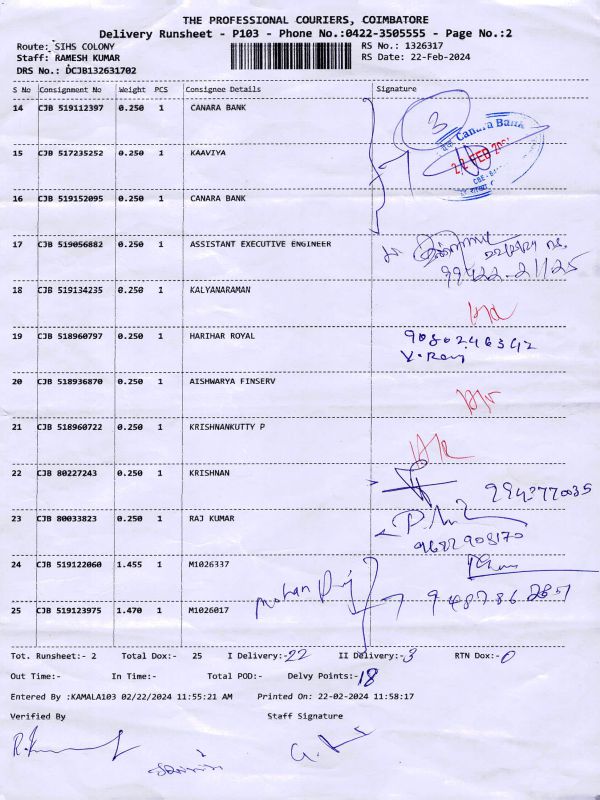 THE PROFESSIONAL COURIERS, COIMBATORE
Delivery Runsheet - P103 - Phone No.:0422-3505555 - Page No.:2
Route: SIHS COLONY RS No.: 1326317
Staff: RAMESH KUMAR RS Date: 22-Feb-2024
DRS No.: DCJB132631702
S No Consignment No Weight PCS Consignee Details Signature
14 CJB 519112397 0.250 1 CANARA BANK
3
Canara Bank
22 FEB
15 CJB 517235252 0.250 1 KAAVIYA
16 CJB 519152095 0.250 1 CANARA BANK
17 CJB 519056882 0.250 1 ASSISTANT EXECUTIVE ENGINEER
99422-21125
18 CJB 519134235 0.250 1 KALYANARAMAN
19 CJB 518960797 0.250 1 HARIHAR ROYAL
9080246342
20 CJB 518936870 0.250 1 AISHWARYA FINSERV
21 CJB 518960722 0.250 1 KRISHNANKUTTY P
22 CJB 80227243 0.250 1 KRISHNAN
9943770035
23 CJB 80033823 0.250 1 RAJ KUMAR
24 CJB 519122060 1.455 1 M1026337
25 CJB 519123975 1.470 1 M1026017
Tot. Runsheet:- 2 Total Dox:- 25 I Delivery:- 22 II Delivery:- 3 RTN Dox:- 0
Out Time:- In Time:- Total POD:- Delvy Points:- 18
Entered By :KAMALA103 02/22/2024 11:55:21 AM Printed On: 22-02-2024 11:58:17
Verified By Staff Signature